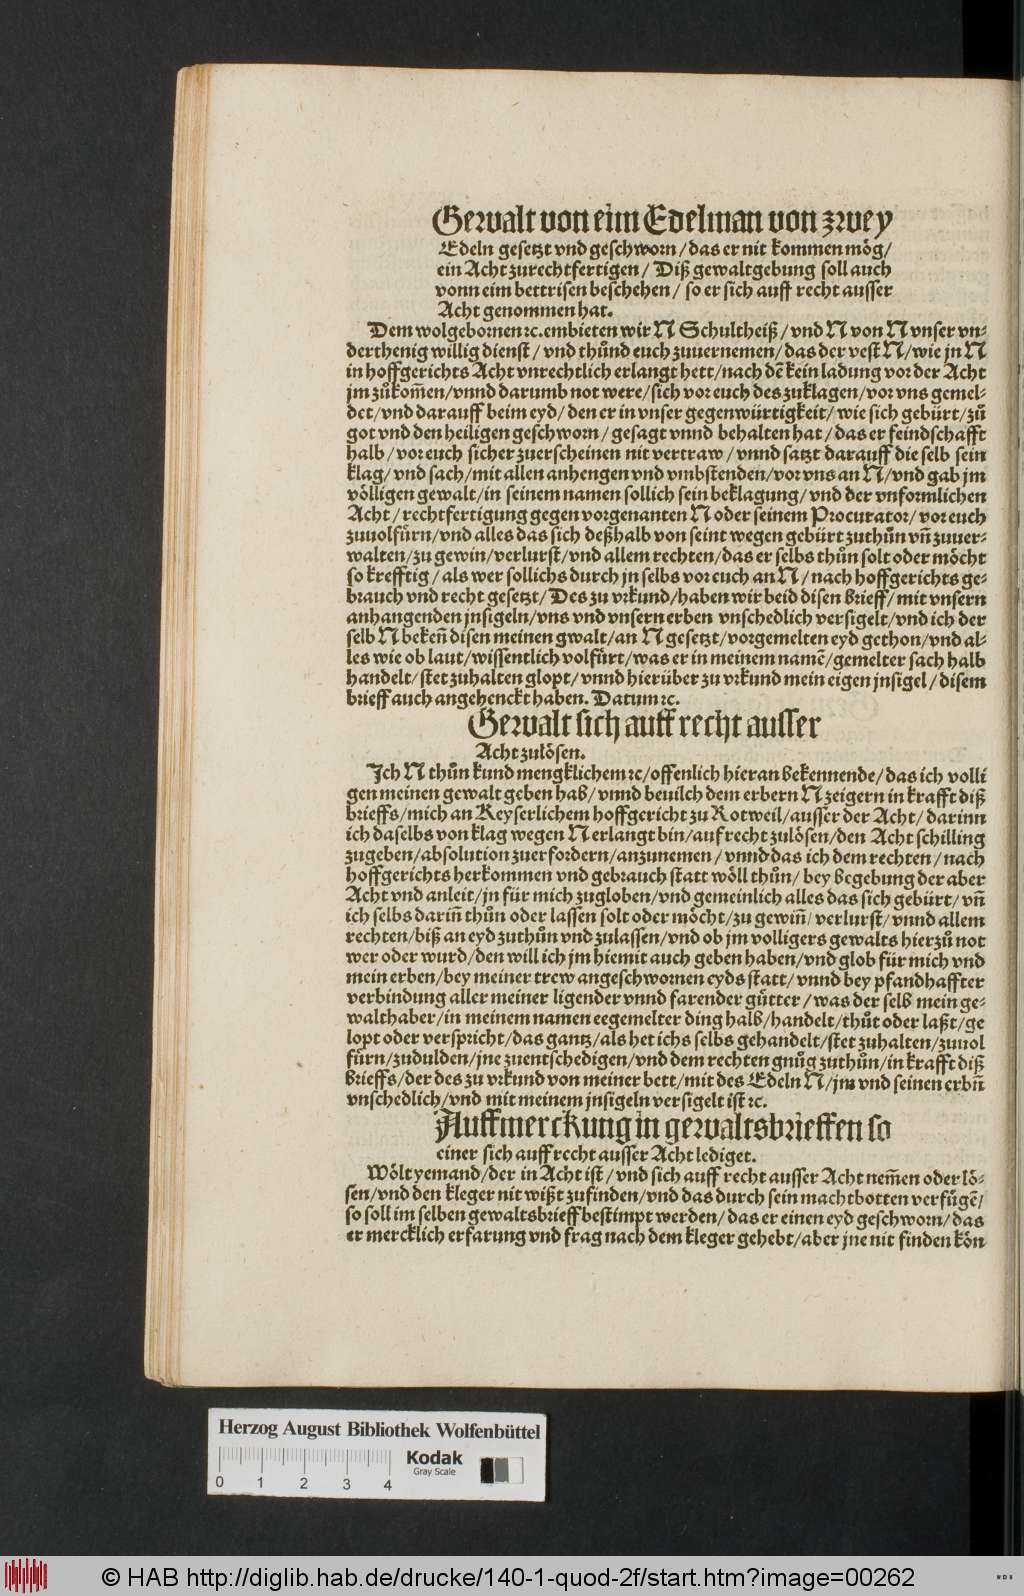 Gewalt von eim Edelman von zwey
Edeln gesetzt vnd geschworn / das er nit kommen mög /
ein Acht zurechtfertigen / Diß gewaltgebung soll auch
vonn eim bettrisen beschehen / so er sich auff recht ausser
Acht genommen hat.
Dem wolgebornen ꝛc. embieten wir N Schultheiß / vnd N von N vnser vn-
derthenig willig dienst / vnd thůnd euch zuuernemen / das der vest N / wie jn N
in hoffgerichts Acht vnrechtlich erlangt hett / nach dē kein ladung vor der Acht
jm zůkom̄en / vnnd darumb not were / sich vor euch des zuklagen / vor vns gemel-
det / vnd darauff beim eyd / den er in vnser gegenwürtigkeit / wie sich gebürt / zů
got vnd den heiligen geschworn / gesagt vnnd behalten hat / das er feindschafft
halb / vor euch sicher zuerscheinen nit vertraw / vnnd satzt darauff die selb sein
klag / vnd sach / mit allen anhengen vnd vmbstenden / vor vns an N / vnd gab jm
völligen gewalt / in seinem namen sollich sein beklagung / vnd der vnformlichen
Acht / rechtfertigung gegen vorgenanten N oder seinem Procurator / vor euch
zuuolfürn / vnd alles das sich deßhalb von seint wegen gebürt zuthůn vn̄ zuuer-
walten / zu gewin / verlurst / vnd allem rechten / das er selbs thůn solt oder möcht
so krefftig / als wer sollichs durch jn selbs vor euch an N / nach hoffgerichts ge-
brauch vnd recht gesetzt / Des zu vrkund / haben wir beid disen brieff / mit vnsern
anhangenden jnsigeln / vns vnd vnsern erben vnschedlich versigelt / vnd ich der
selb N beken̄ disen meinen gwalt / an N gesetzt / vorgemelten eyd gethon / vnd al-
les wie ob laut / wissentlich volfürt / was er in meinem namē / gemelter sach halb
handelt / stet zuhalten glopt / vnnd hierüber zu vrkund mein eigen jnsigel / disem
brieff auch angehenckt haben. Datum ꝛc.
Gewalt sich auff recht ausser
Acht zulösen.
Ich N thůn kund mengklichem ꝛc / offenlich hieran bekennende / das ich volli
gen meinen gewalt geben hab / vnnd beuilch dem erbern N zeigern in krafft diß
brieffs / mich an Keyserlichem hoffgericht zu Rotweil / ausser der Acht / darinn
ich daselbs von klag wegen N erlangt bin / auf recht zulösen / den Acht schilling
zugeben / absolution zuerfordern / anzunemen / vnnd das ich dem rechten / nach
hoffgerichts herkommen vnd gebrauch statt wöll thůn / bey begebung der aber
Acht vnd anleit / jn für mich zugloben / vnd gemeinlich alles das sich gebürt / vn̄
ich selbs darin̄ thůn oder lassen solt oder möcht / zu gewin̄ / verlurst / vnnd allem
rechten / biß an eyd zuthůn vnd zulassen / vnd ob jm volligers gewalts hierzů not
wer oder wurd / den will ich jm hiemit auch geben haben / vnd glob für mich vnd
mein erben / bey meiner trew angeschwornen eyds statt / vnnd bey pfandhaffter
verbindung aller meiner ligender vnnd farender gütter / was der selb mein ge-
walthaber / in meinem namen eegemelter ding halb / handelt / thůt oder laßt / ge
lopt oder verspricht / das gantz / als het ichs selbs gehandelt / stet zuhalten / zuuol
fürn / zudulden / jne zuentschedigen / vnd dem rechten gnůg zuthůn / in krafft diß
brieffs / der des zu vrkund von meiner bett / mit des Edeln N / jm vnd seinen erbn̄
vnschedlich / vnd mit meinem jnsigeln versigelt ist ꝛc.
Auffmerckung in gewaltsbrieffen so
einer sich auff recht ausser Acht lediget.
Wölt yemand / der in Acht ist / vnd sich auff recht ausser Acht nem̄en oder lö-
sen / vnd den kleger nit wißt zufinden / vnd das durch sein machtbotten verfügē /
so soll im selben gewaltsbrieff bestimpt werden / das er einen eyd geschworn / das
er mercklich erfarung vnd frag nach dem kleger gehebt / aber jne nit finden kön
Herzog August Bibliothek Wolfenbüttel
Kodak
Gray Scale
0 1 2 3 4
© HAB http://diglib.hab.de/drucke/140-1-quod-2f/start.htm?image=00262